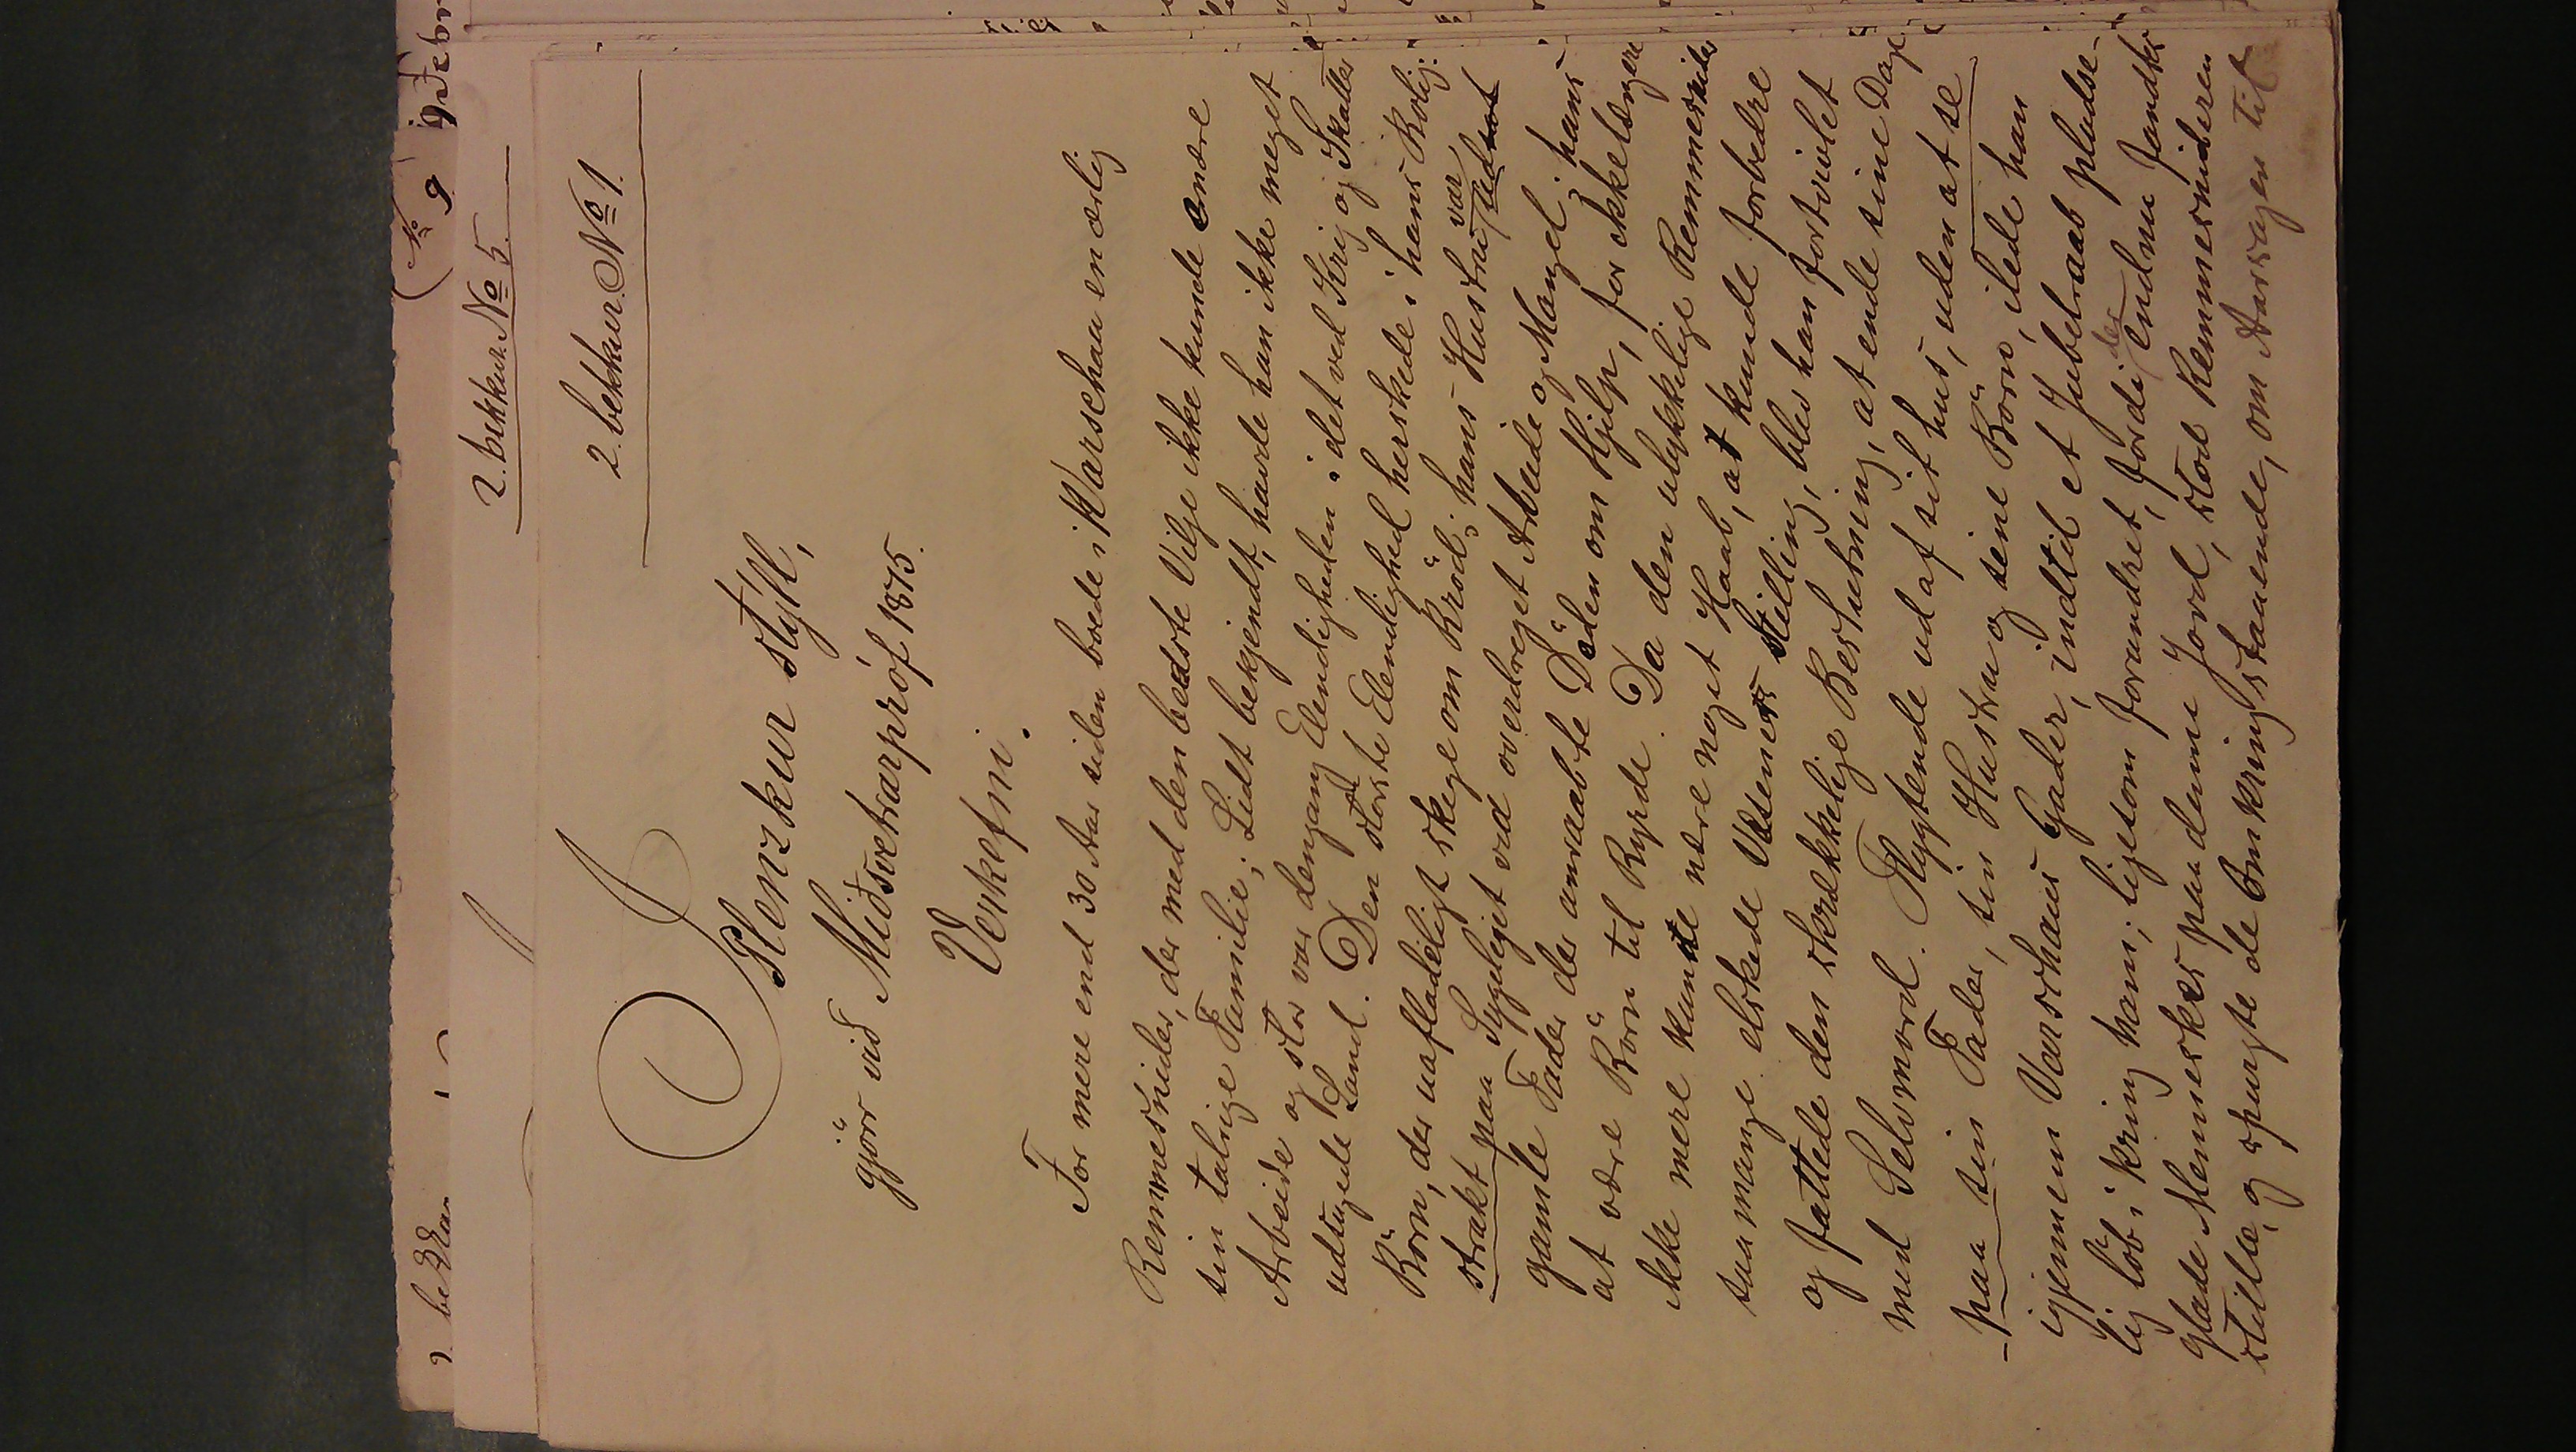 (No 9 9 Febr
2. bekkur. No 5.
2. bekkur. No 1.
Plenzkur stýll,
gjörr við Miðsvetrarpróf 1875.
Verkefni.
For mere end 30 Aar siden boede i Warschau en ærlig
Remmesnider, der med den bedste Vilje ikke kunde ernære
sin talrige Familie; Lidt bekjendt, havde han ikke meget
Arbeide og stor var dengang Elendigheden i det ved Krig og Skatter
udsugede Land. Den største Elendighed herskede i hans Bolig:
Börn, der uafladeligt skrege om Bröd; hans Hustru var udstrakt
strakt paa Sygelejet ved overdreget Arbeide og Mangel; hans
gamle Fader der anraabte Döden om Hjelp, for ikke længere
at være Börn til Byrde. Da den ulykkelige Remmesnider
ikke mere kunde nære noget Haab, at kunde forbedre
saa mange elskede Væseners Stilling, blev han fortvivlet
og fattede den skrækkelige Beslutning, at ende sine Dage
med Selvmord. Flygtende ud af sit hus, uden at se
- paa sin Fader, sin Hustru og sine Börn, ilede han
igjennem Varschaus Gader, indtil et Jubelraab pludse-
lig löb i kring ham; ligesom forundret, fordi der endnu fandtes
glade Mennesker paa denne Jord, stod Remmesnideren
stille, og spurgte de Omkringstaaende, om Aarsagen til